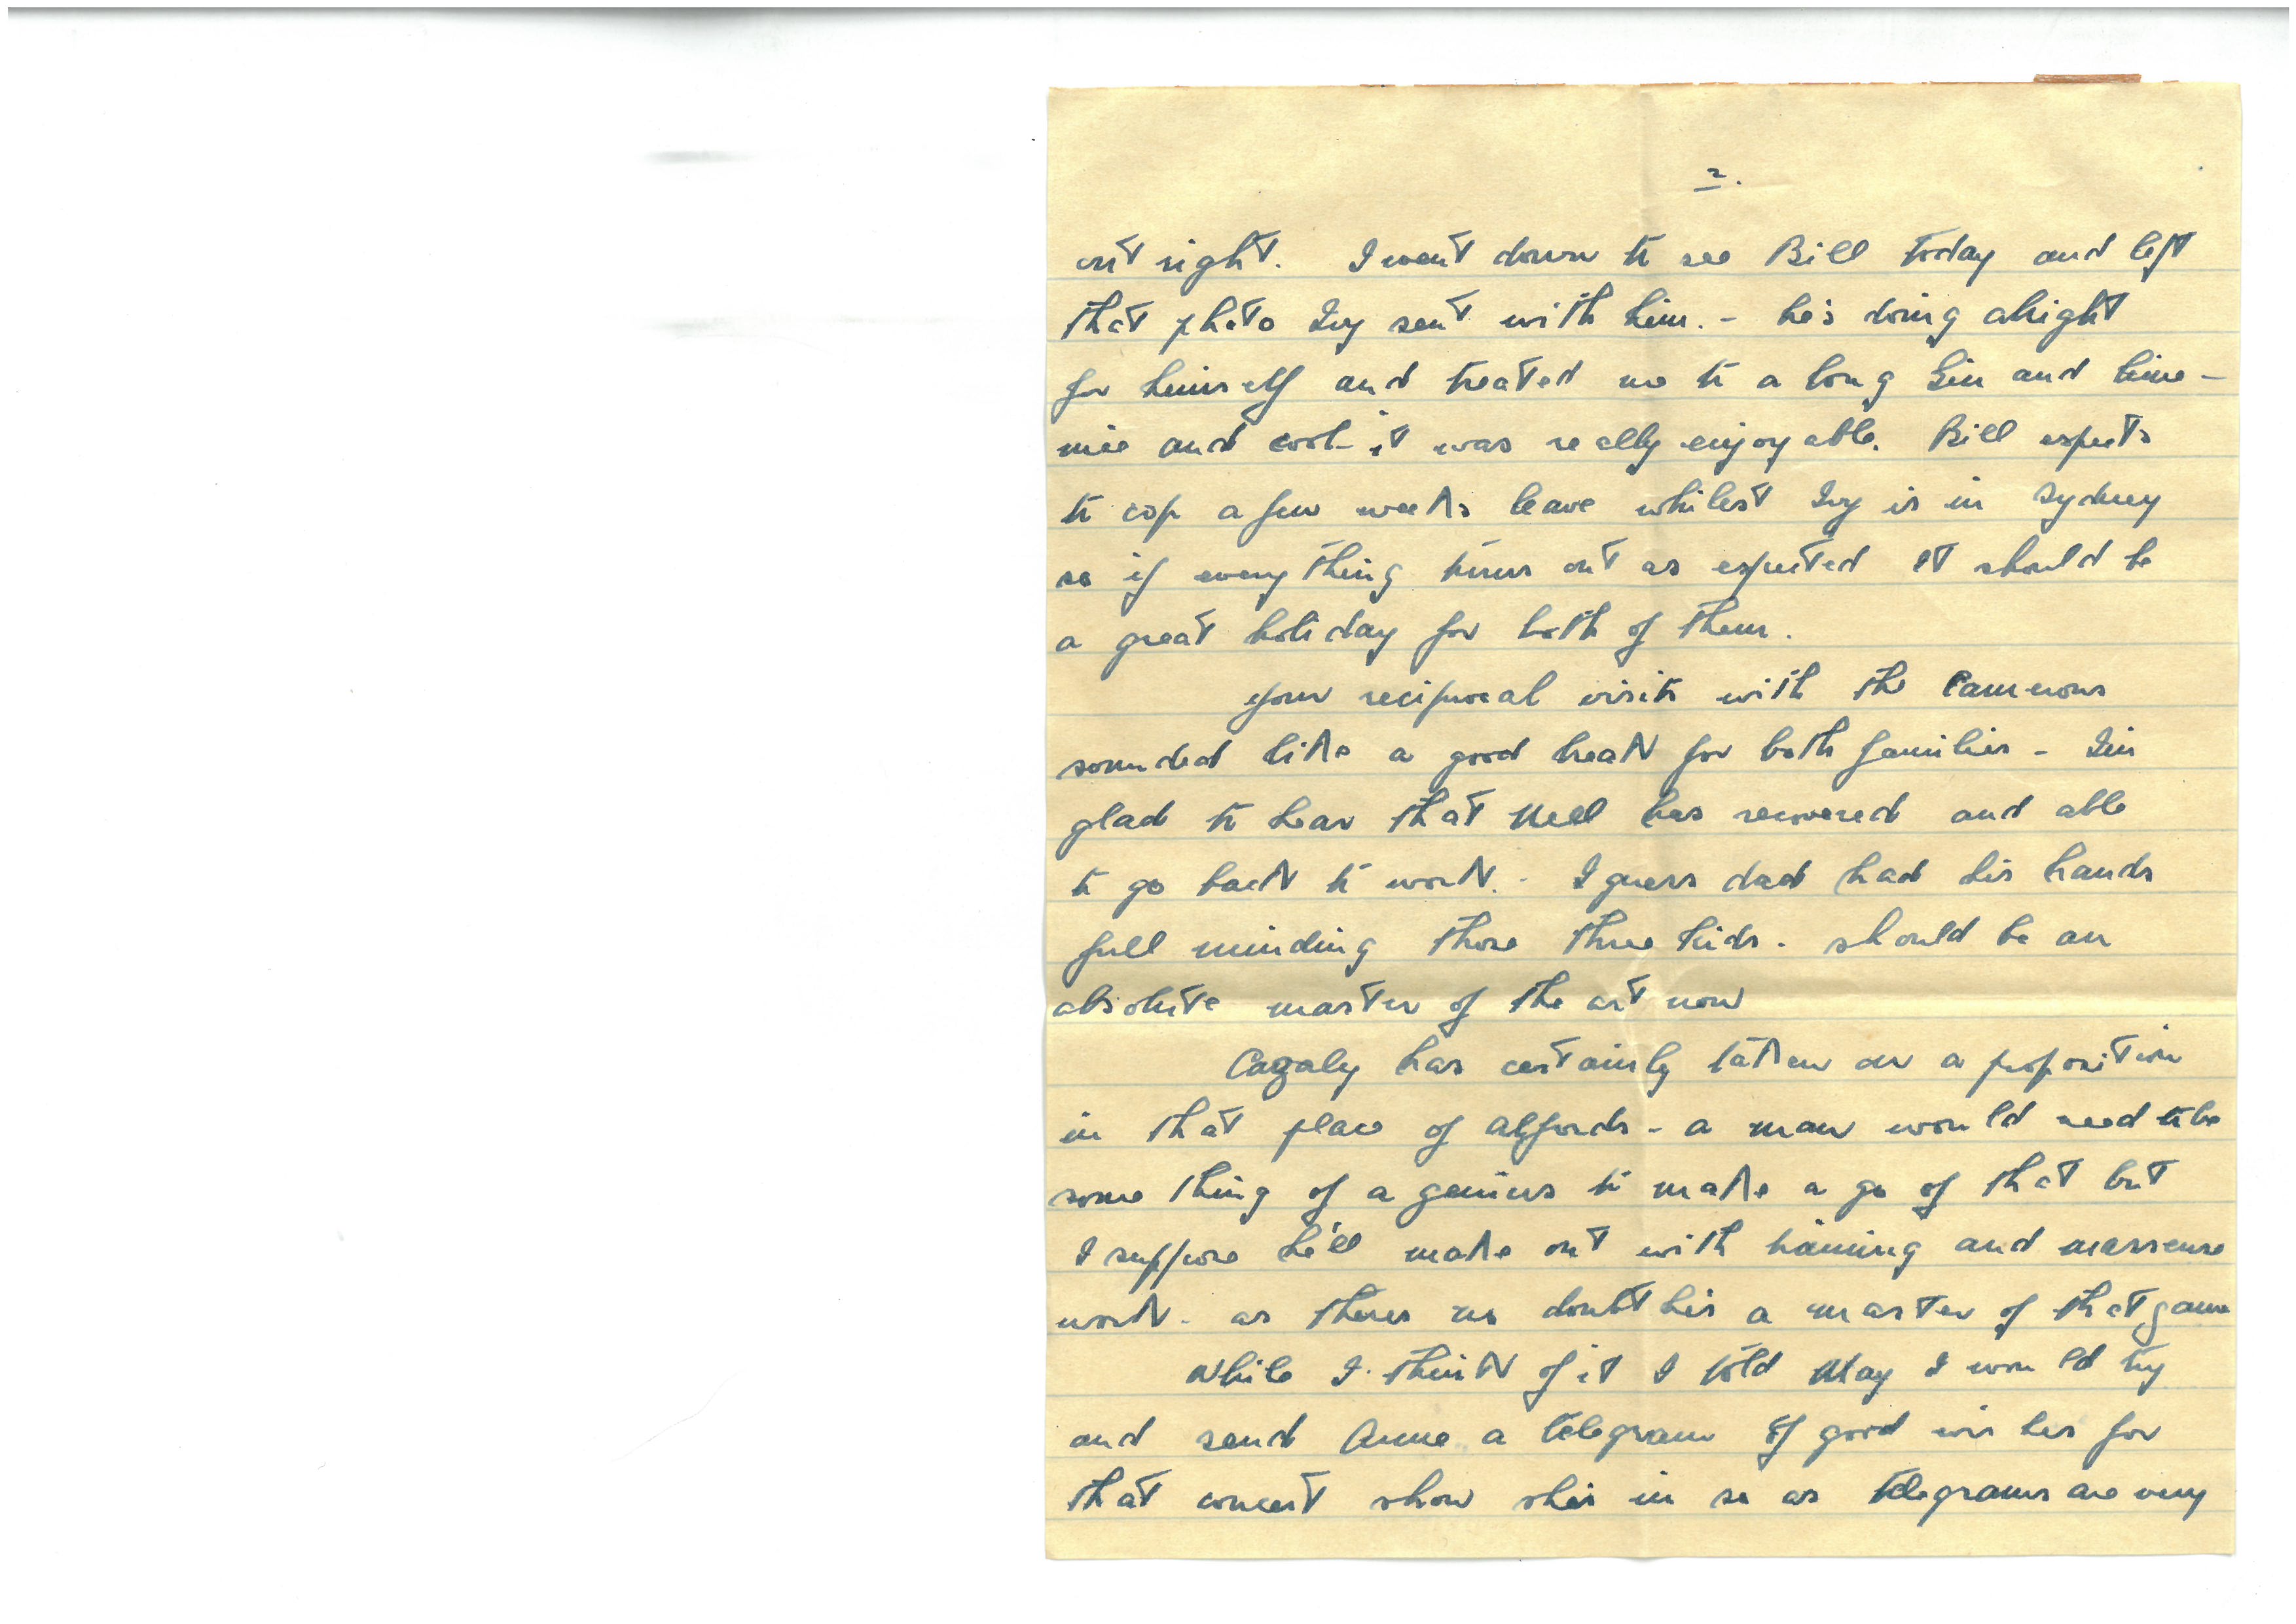 2.
out right. I went down to see Bill today and left
that photo Ivy sent with him. - he's doing alright
for himself and treated me to a long Gin and lime -
nice and cool - it was really enjoyable. Bill expects
to cop a few weeks leave whilest Ivy is in Sydney
so if everything turns out as expected it should be
a great holiday for both of them.
Your reciprocal visits with the Camerons
sounded like a good break for both families - I'm
glad to hear that Nell has recovered and able
to go back to work. - I guess dad had his hands
full minding those three kids. should be an
absolute master of the art now
Cazaly has certainly taken on a proposition
in that place of Alfords - a man would need to be
some thing of a genius to make a go of that but
I suppose he'll make out with training and masseuse
work - as theres no doubt his a master of that game
While I think of it I told May I would try
and send Anne a telegram of good wishes for
that concert show shes in so as telegrams are very